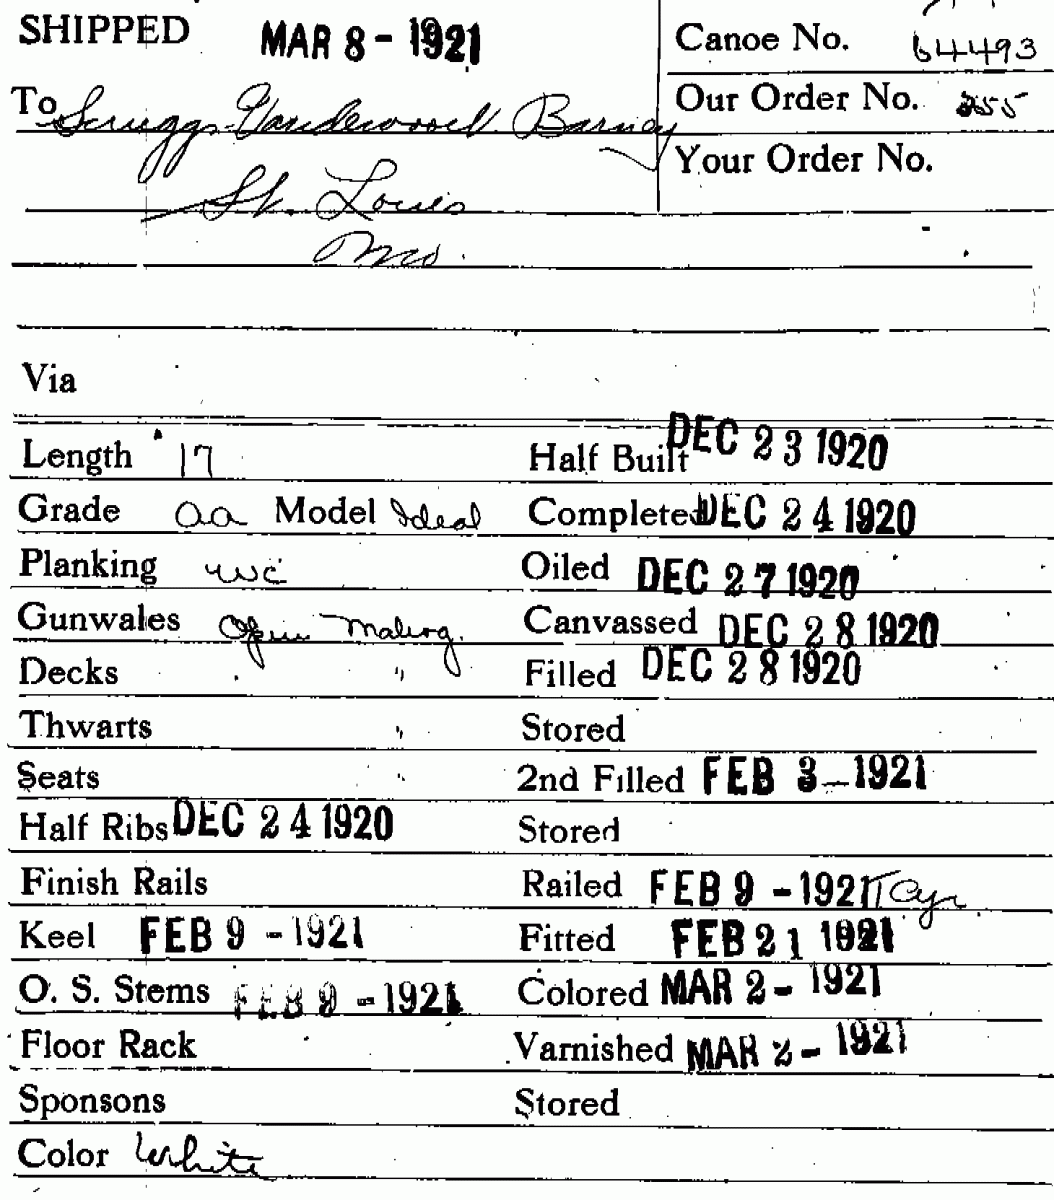 SHIPPED MAR 8 - 1921 Canoe No. 64493
To Scruggs Vandervoort Barney Our Order No. 255
Your Order No.
St. Louis
Mo.
Via
Length 17 Half Built DEC 23 1920
Grade aa Model Ideal Completed DEC 24 1920
Planking wc Oiled DEC 27 1920
Gunwales Open Mahog. Canvassed DEC 28 1920
Decks " Filled DEC 28 1920
Thwarts " Stored
Seats " 2nd Filled FEB 3 - 1921
Half Ribs DEC 24 1920 Stored
Finish Rails Railed FEB 9 - 1921 T Cyr
Keel FEB 9 - 1921 Fitted FEB 21 1921
O. S. Stems FEB 9 - 1921 Colored MAR 2 - 1921
Floor Rack Varnished MAR 2 - 1921
Sponsons Stored
Color White